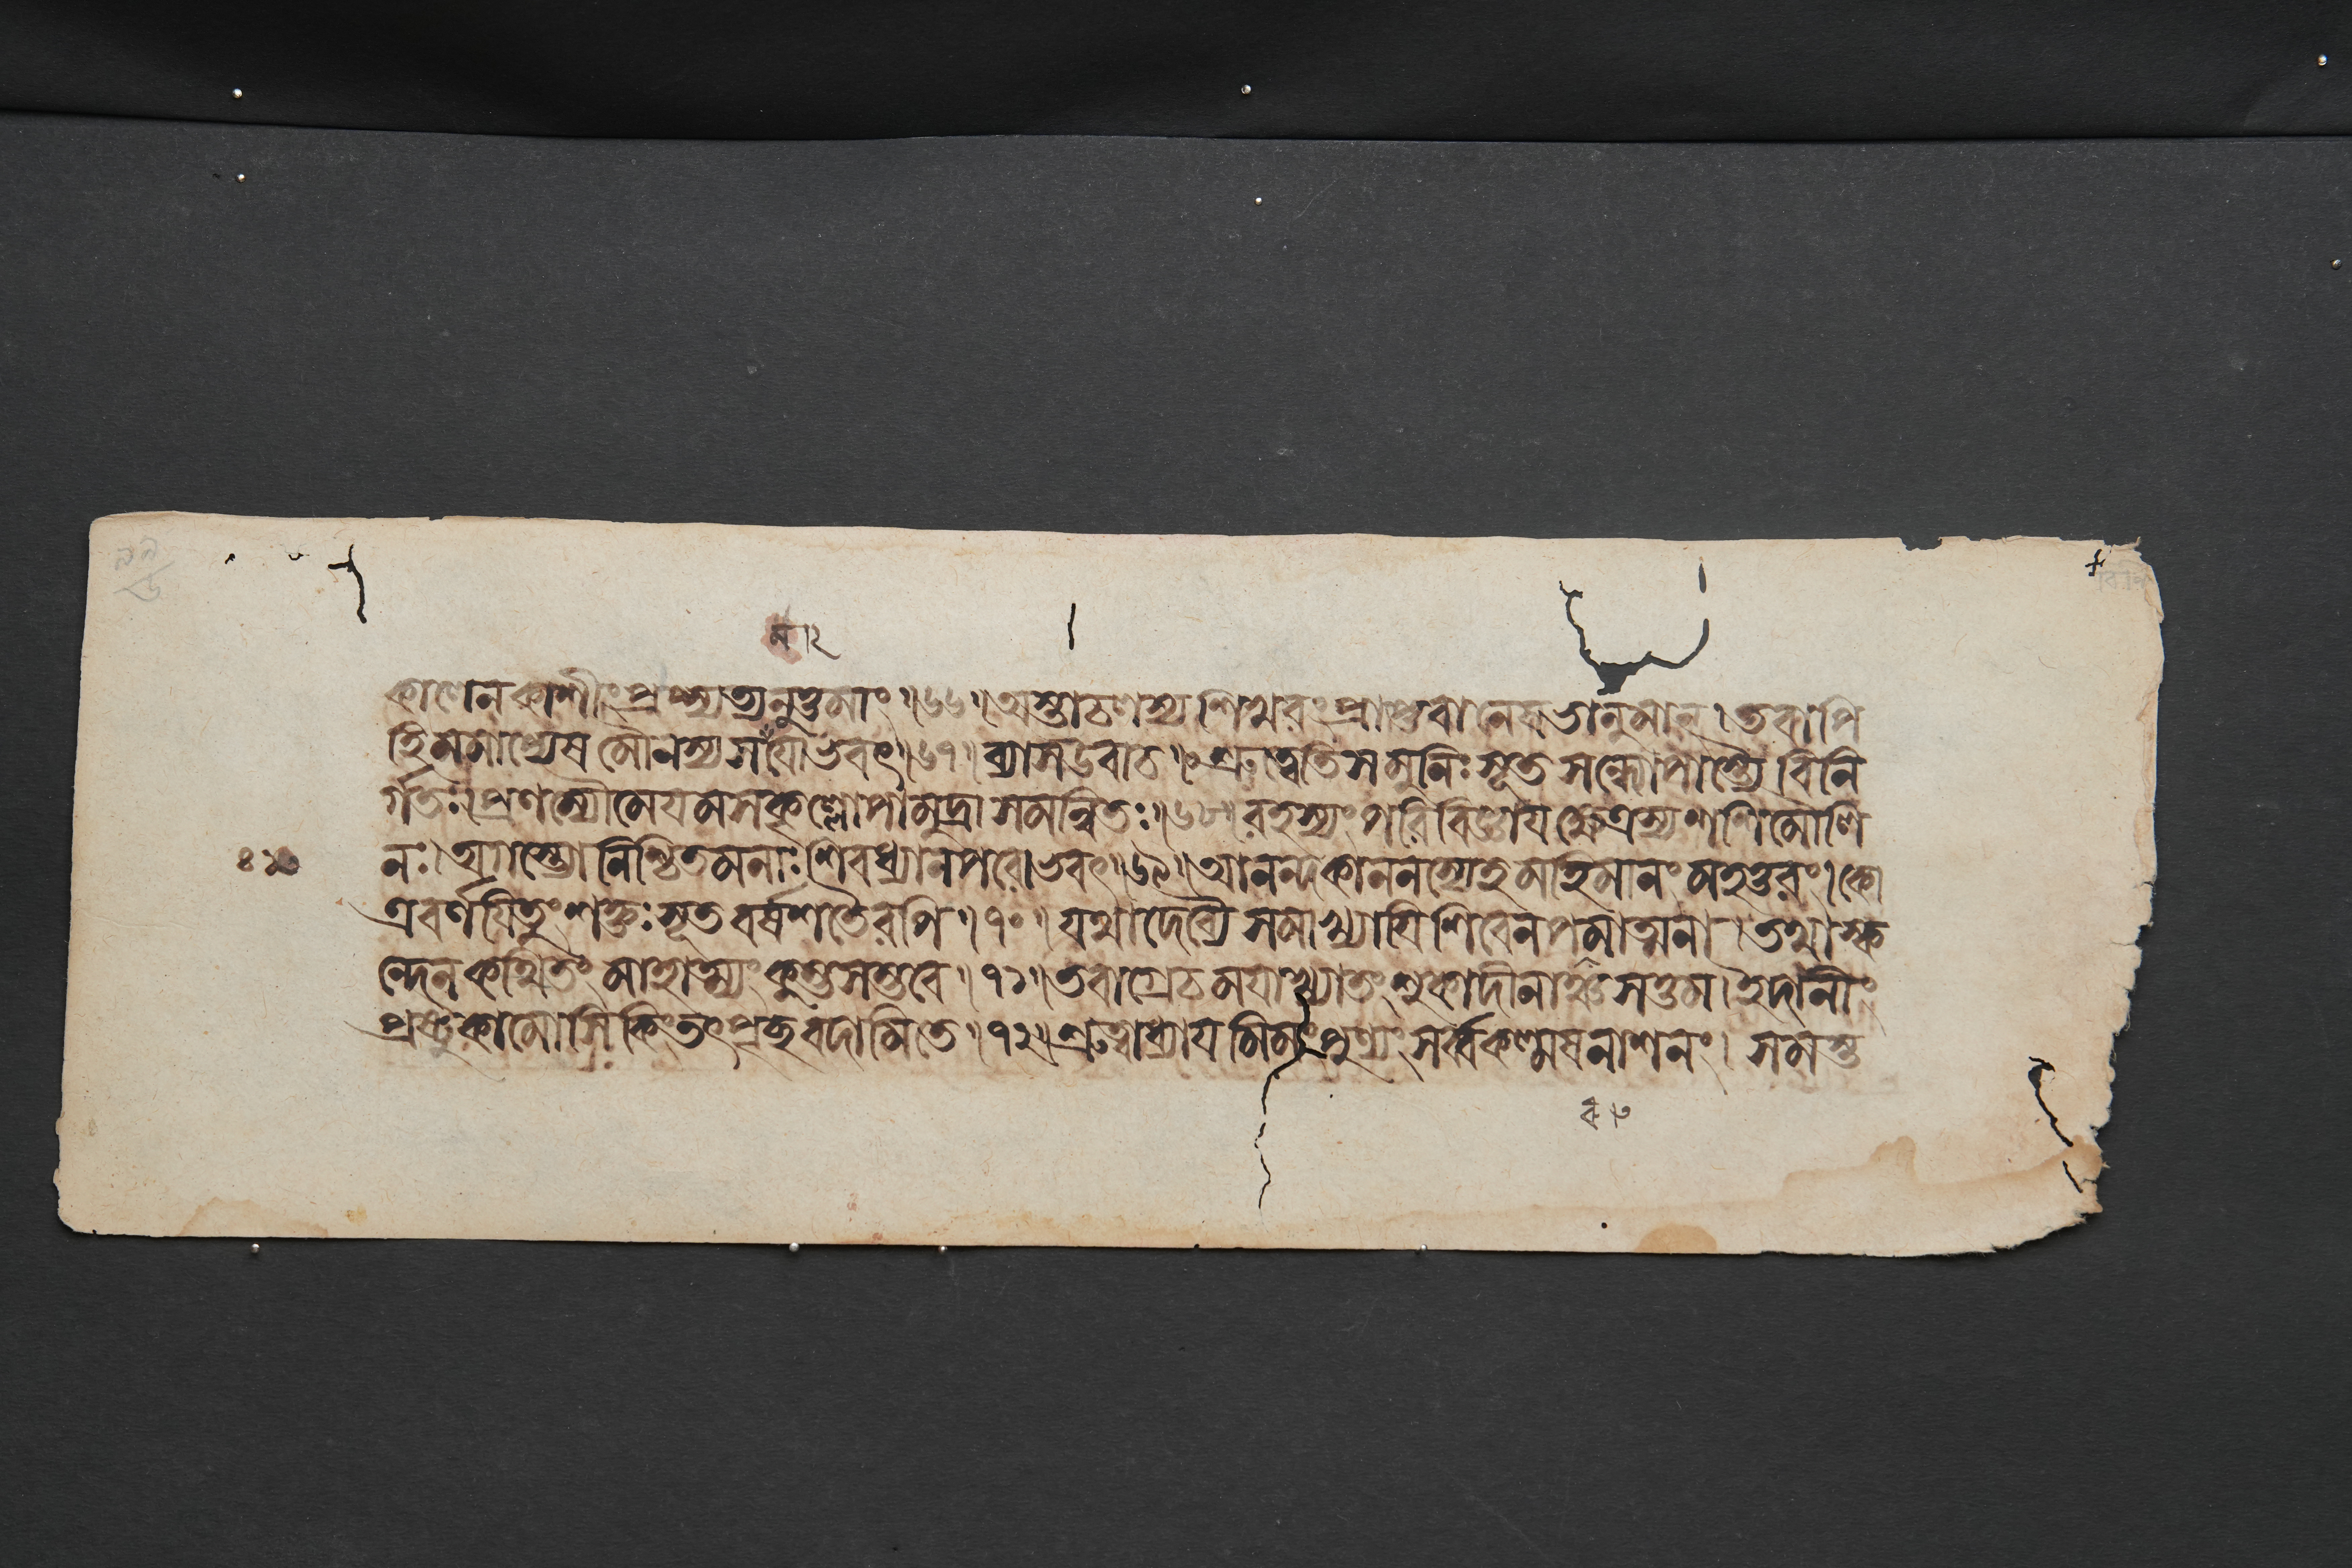 মা২
কালেন কাশীং প্রাপ্স্যত্যনুত্তমাং ॥৬৬॥ অস্তাচলস্য শিখরং প্রাপ্তবানেষ ভানুমান্ । তবাপি
হি মমাপ্যেষ মৌনস্য সময়োঽভবৎ ॥৬৭॥ ব্যাস উবাচ ॥ শ্রুত্বেতি স মুনিঃ সূত সন্ধ্যোপাস্ত্যৈ বিনি
র্গতঃ। প্রণম্যৌমেয়মসকৃল্লোপামুদ্রাসমন্বিতঃ ॥৬৮॥ রহস্যং পরিবিজ্ঞায় ক্ষেত্রস্য শশিমৌলি
নঃ। অগস্ত্যো নিশ্চিতমনাঃ শিবধ্যানপরোঽভবৎ ॥৬৯॥ আনন্দকাননস্যেহ মহিমানং মহত্তরং। কো
ত্র বর্ণয়িতুং শক্তঃ সূত বর্ষশতৈরপি ॥৭০॥ যথা দেব্যৈ সমাখ্যায়ি শিবেন পরমাত্মনা । তথা স্ক
ন্দেন কথিতং মাহাত্ম্যং কুম্ভসম্ভবে ॥৭১॥ তবাগ্রে চ ময়াখ্যাতং শুকাদীনাঞ্চ সত্তম। ইদানীং
প্রষ্টুকামোসি কিং তৎ পৃচ্ছ বদামি তে ॥৭২॥ শ্রুত্বাধ্যায়মিমং পুণ্যং সর্ব্বকল্মষনাশনং। সমস্ত